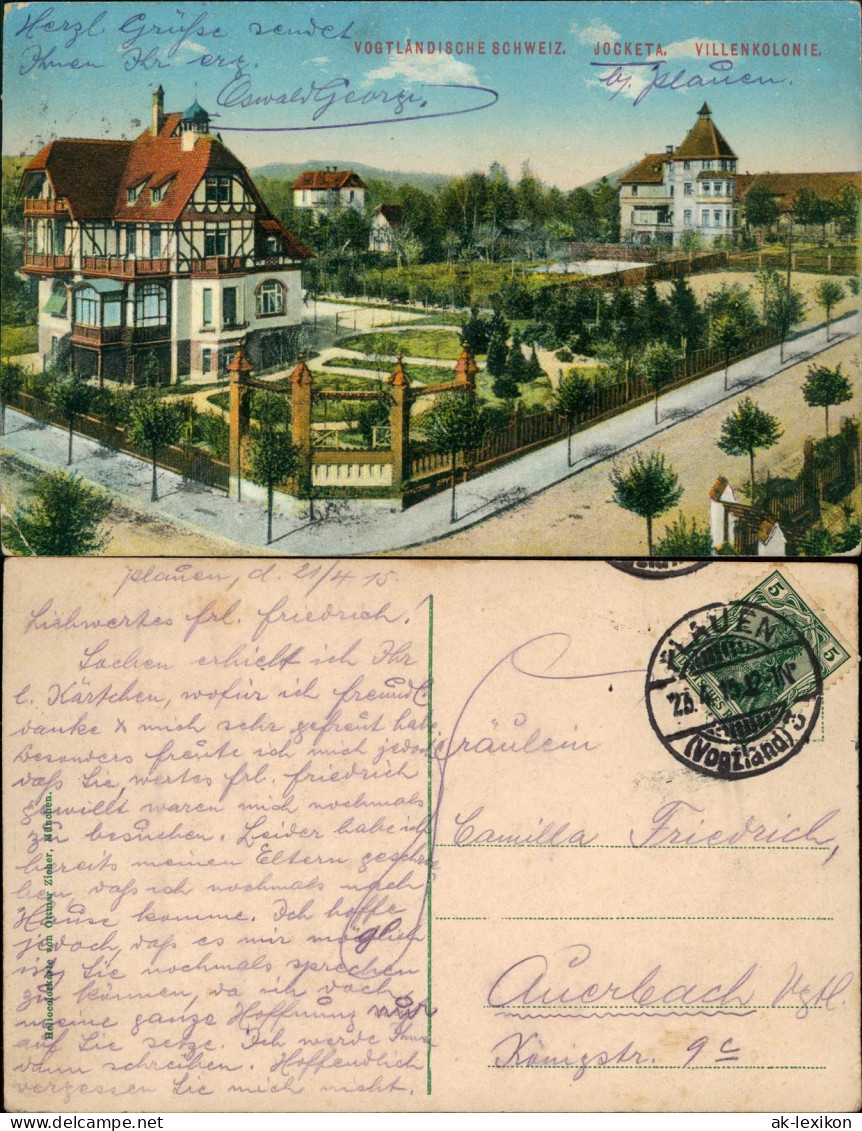 Herzl. Grüße sendet
Ihnen Ihr erg.
Oswald Georgi.
VOGTLÄNDISCHE SCHWEIZ. JOCKETA. VILLENKOLONIE.
b/ Plauen.
Plauen, d. 21/4. 15.
Liebwertes Frl. Friedrich!
Soeben erhielt ich Ihr
l. Kärtchen, wofür ich freundl.
danke & mich sehr gefreut habe
Besonders freute ich mich jedoch
daß Sie, wertes Frl. Friedrich
gewillt waren mich nochmals
zu besuchen. Leider habe ich
bereits meinen Eltern geschrie
ben, daß ich nochmals nach
Hause komme. Ich hoffe
jedoch, daß es mir möglich
ist, Sie nochmals sprechen
zu können, da ich doch
meine ganze Hoffnung nur
auf Sie setze. Ich werde Ihnen
dann schreiben. Hoffentlich
vergessen Sie mich nicht.
Heliocolorkarte von Ottmar Zieher, München.
5
5
PLAUEN
(Vogtland) 3
Fräulein
Camilla Friedrich,
Auerbach Vgtl.
Königstr. 9c
ak-lexikon